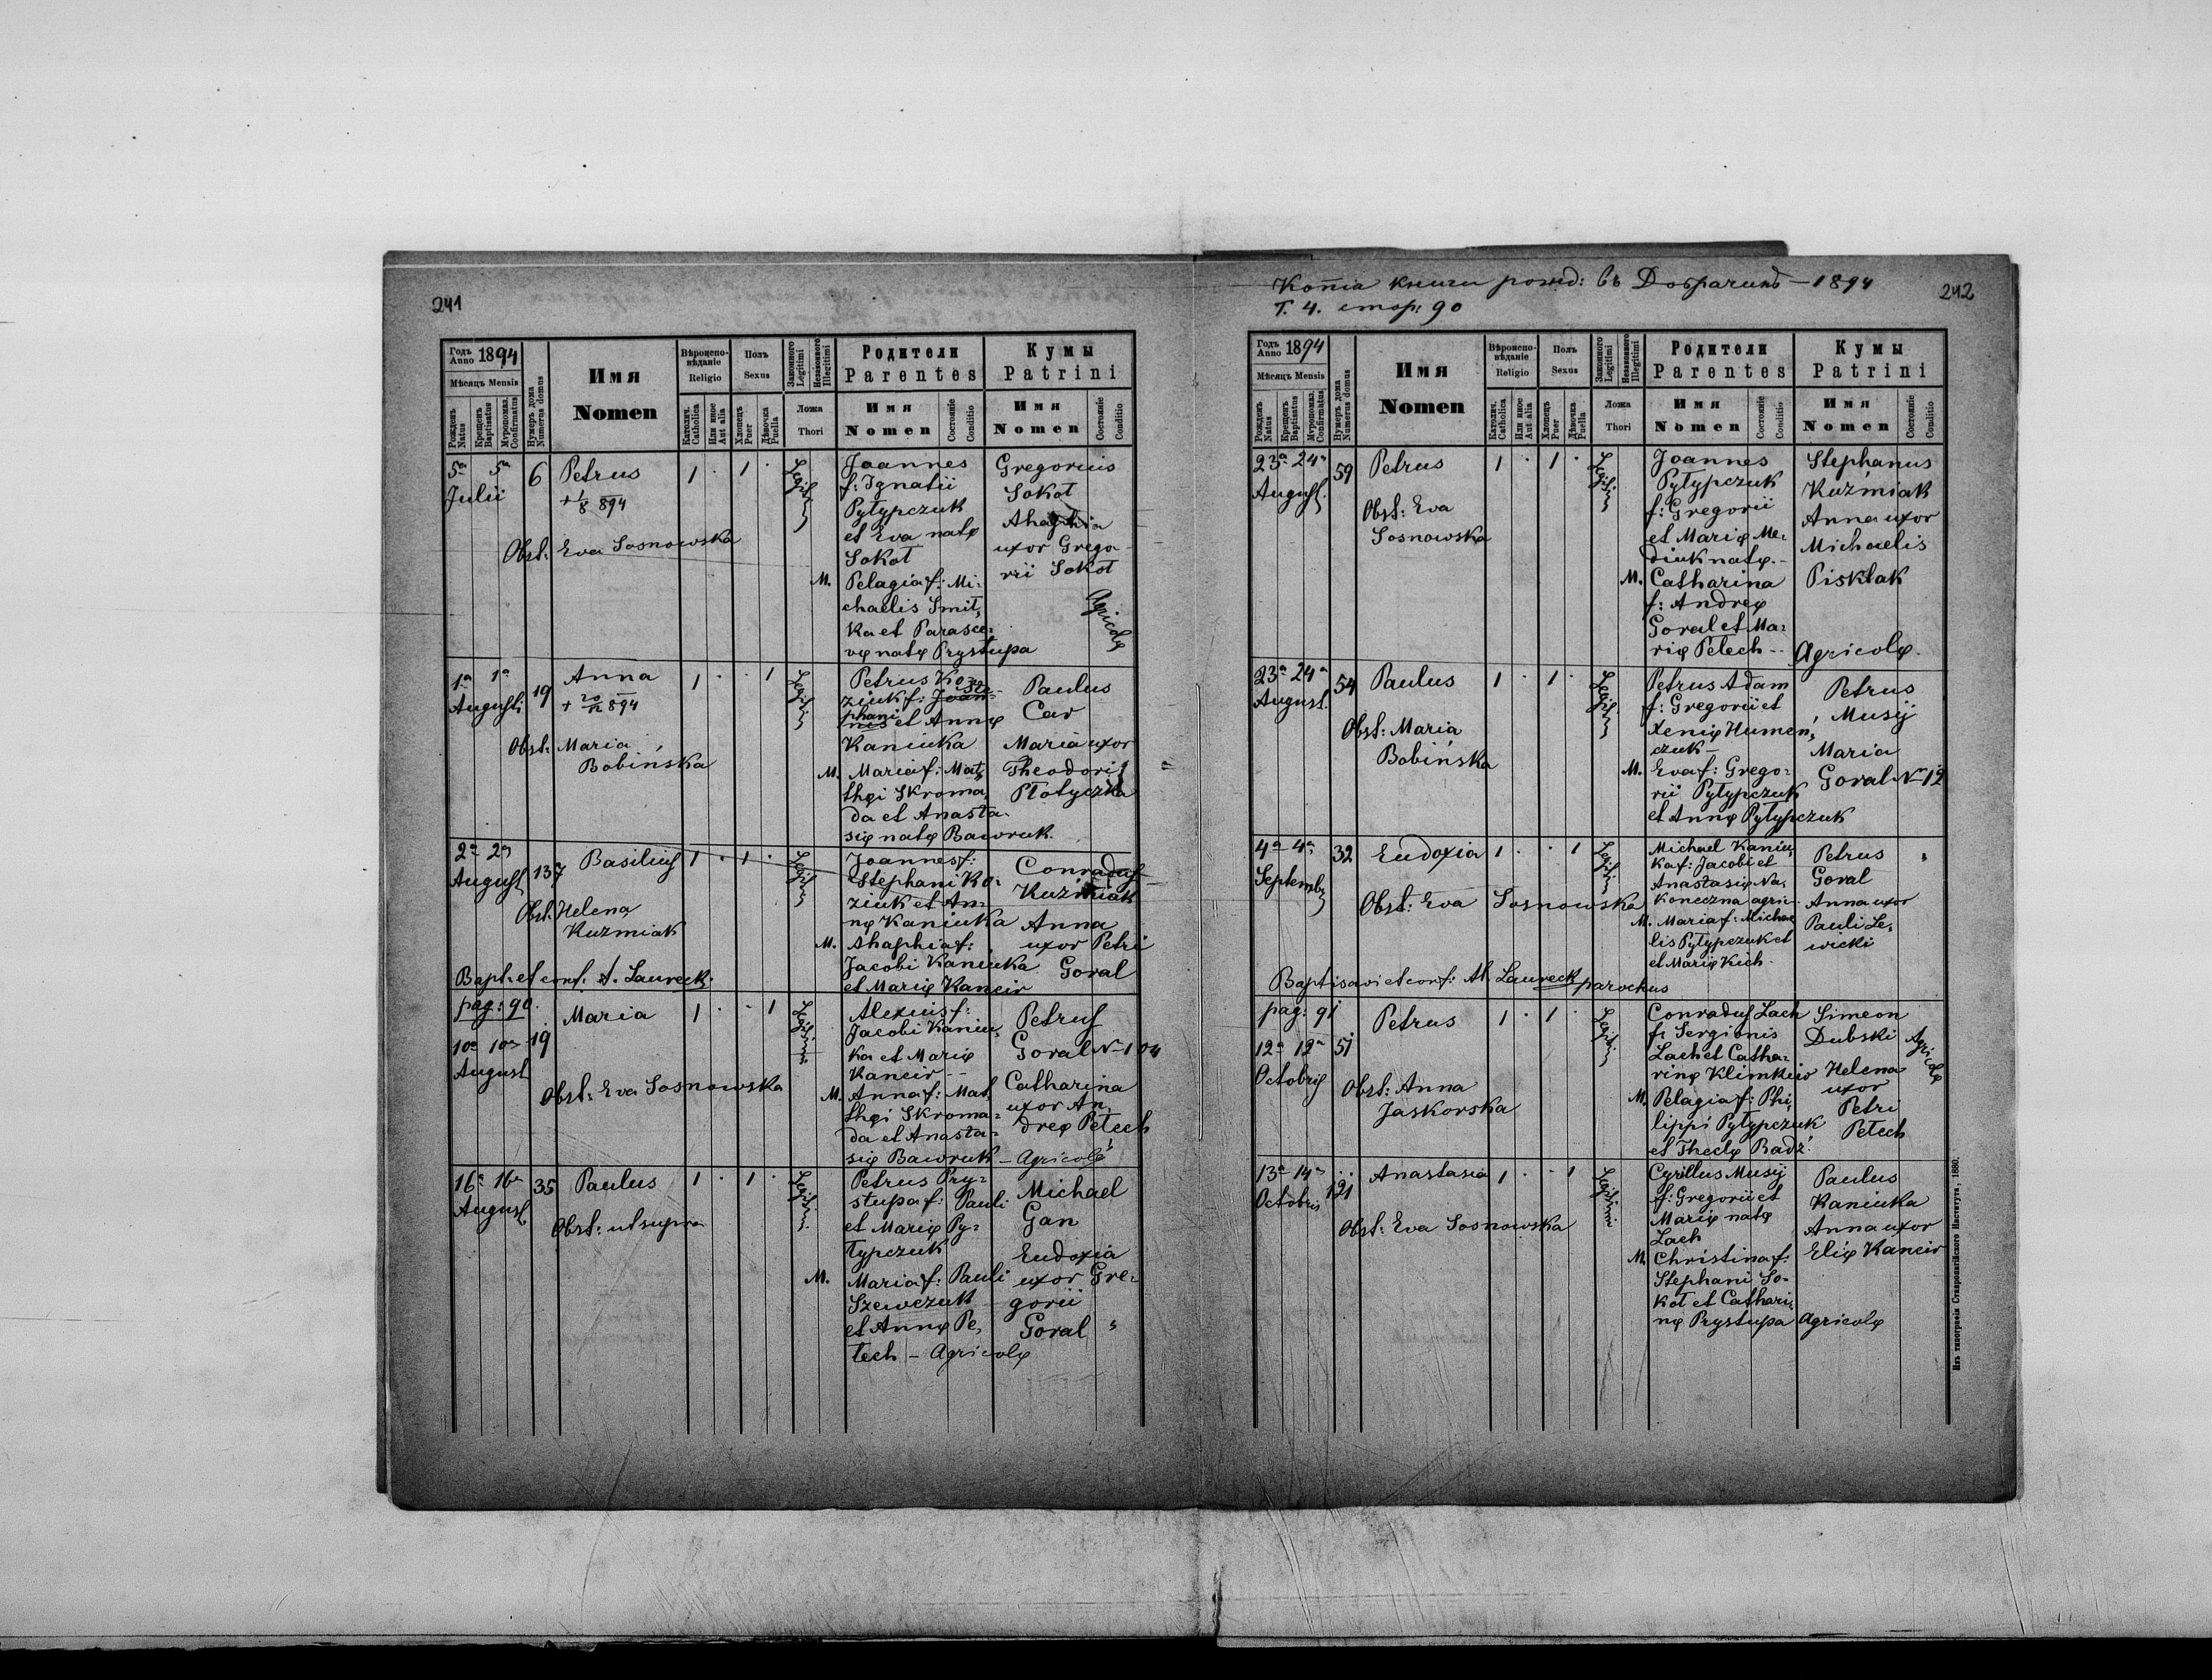 241
Годъ Anno 1894
Мѣсяцъ Mensis
Рожденъ Natus
Крещенъ Baptisatus
Мѵропомаз. Confirmatus
Нумеръ дома Numerus domus
Имя
Nomen
Вѣроиспо-
вѣданіе
Religio
Католич. Catholica
Или иное Aut alia
Полъ
Sexus
Хлопецъ Puer
Дѣвочка Puella
Законного Legitimi
Незаконного Illegitimi
Ложа
Thori
Родители
Parentes
Имя
Nomen
Состояніе Conditio
Кумы
Patrini
Имя
Nomen
Состояніе Conditio
5a 5a
Julii
6
Petrus
+ 1/8 894
Obst: Eva Sosnowska
1 . 1 .
Legitimi
Joannes
f: Ignatii
Pyłypczuk
et Eva natę
Sokoł
M. Pelagia f: Mi-
chaelis Smit,
ka et Parasce-
vę natę Prystupa
Gregorius
Sokoł
Ahaphia
uxor Grego-
rii Sokoł
Agricolę
1a 1a
Augusti
19
Anna
+ 20/12 894
Obst: Maria
Bobińska
1 . . 1
Legitimi
Petrus Ko-
ziuk f: Joan Ste-
phani
nis et Annę
Kaniuka
M. Maria f: Mat,
thęi Skroma,
da et Anasta-
się natę Bawruk.
Paulus
Car
Maria uxor
Theodori
Płotyczka
2a 2a
August
137
Basilius
Obst. Helena
Kuzmiak
1 . 1 .
Legitimi
Joannes f:
Stephani Ko-
ziuk et An-
nę Kaniuka
M. Ahaphia f:
Jacobi Kaniuka
et Marię Kancir
Conradus
Kuźmiak
Anna
uxor Petri
Goral
Bapt. et conf. A. Laurecki
pag: 90.
10a 10a
August
19
Maria
Obst: Eva Sosnowska
1 . . 1
Legitimi
Alexius f:
Jacobi Kaniu,
ka et Marię
Kancir --
M. Anna f: Mat,
thęi Skroma-
da et Anasta-
się Bawruk - Agricolę
Petrus
Goral N 104
Catharina
uxor An-
dreę Petech
16a 16a
August
35
Paulus
Obst: ut supra
1 . 1 .
Legitimi
Petrus Pry-
stupa f: Pauli
et Marię Py-
łypczuk
M. Maria f: Pauli
Szewczuk
et Annę Pe,
tech - Agricolę
Michael
Gan
Eudoxia
uxor Gre-
gorii
Goral
Копіа книги рожд: въ Добрачинѣ - 1894
Т. 4. стор: 90
242
Годъ Anno 1894
Мѣсяцъ Mensis
Рожденъ Natus
Крещенъ Baptisatus
Мѵропомаз. Confirmatus
Нумеръ дома Numerus domus
Имя
Nomen
Вѣроиспо-
вѣданіе
Religio
Католич. Catholica
Или иное Aut alia
Полъ
Sexus
Хлопецъ Puer
Дѣвочка Puella
Законного Legitimi
Незаконного Illegitimi
Ложа
Thori
Родители
Parentes
Имя
Nomen
Состояніе Conditio
Кумы
Patrini
Имя
Nomen
Состояніе Conditio
23a 24a
August.
59
Petrus
Obst: Eva
Sosnowska
1 . 1 .
Legitimi
Joannes
Pyłypczuk
f: Gregorii
et Marię Me-
diuk natę.-
M. Catharina
f: Andreę
Goral et Ma-
rię Petech --
Stephanus
Kuźmiak
Anna uxor
Michaelis
Piskłak
Agricolę.
23a 24a
August.
54
Paulus
Obst: Maria
Bobińska
1 . 1 .
Legitimi
Petrus Adam
f: Gregorii et
Xenię Humen,
czuk -
M. Eva f: Grego-
rii Pyłypczuk
et Annę Pyłypczuk
Petrus
Musij
Maria
Goral N 12
4a 4a
Septemb
32
Eudoxia
Obst: Eva Sosnowska
1 . . 1
Legitimi
Michael Kaniu,
ka f: Jacobi et
Anastasię Na,
koneczna agric-
M. Maria f: Michae
lis Pyłypczuk et
et Marię Kich -
Petrus
Goral
Anna uxor
Pauli Le,
wicki
Baptisavi et conf: Al. Laurecki parochus
pag: 91
12a 12a
Octobris
51
Petrus
Obst: Anna
Jaskorska
1 . 1 .
Legitimi
Conradus Lach
f: Sergionis
Lach et Catha-
rinę Klimkiw
M. Pelagia f: Phi,
lippi Pyłypczuk
et Theclę Radź.
Simeon
Dubski
Helena
uxor
Petri
Petech
Agricolę
13a 14a
Octobris
121
Anastasia
Obst: Eva Sosnowska
1 . - 1
Legitimi
Cyrillus Musij
f: Gregorii et
Marię natę
Lach
M. Christina f:
Stephani So-
koł et Cathari,
nę Prystupa Agricolę
Paulus
Kaniuka
Anna uxor
Elię Kancir
Изъ типографіи Ставропигійского Института, 1880.